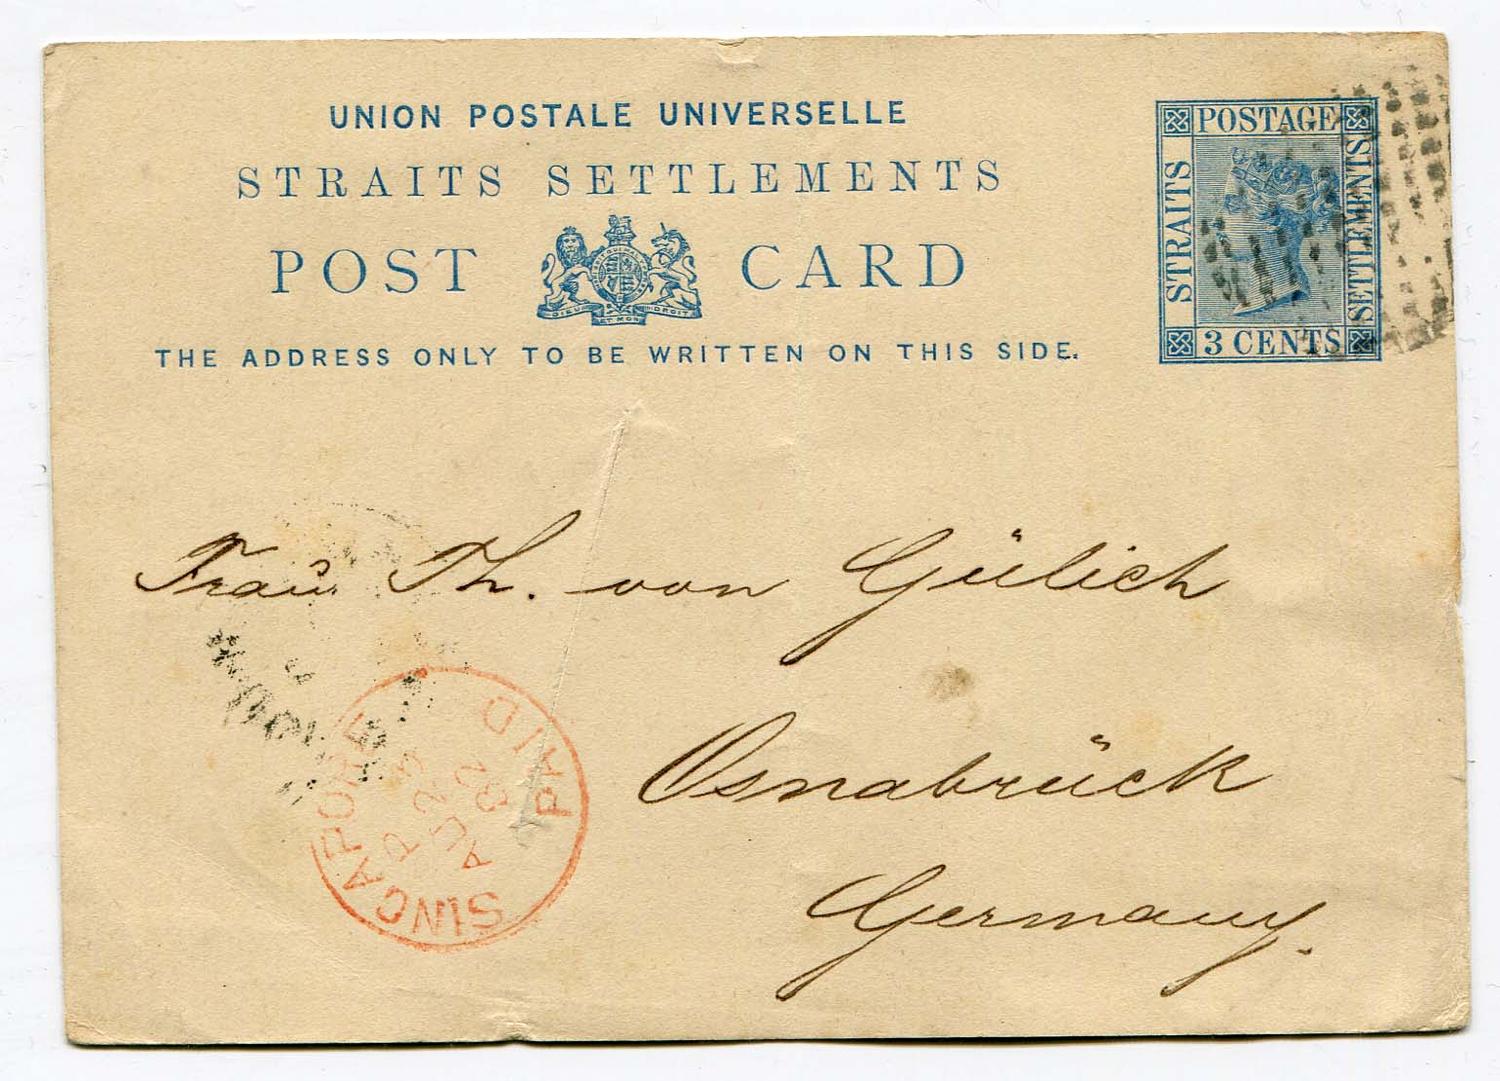 UNION POSTALE UNIVERSELLE
STRAITS SETTLEMENTS
POST CARD
DIEU ET MON DROIT
THE ADDRESS ONLY TO BE WRITTEN ON THIS SIDE.
POSTAGE
STRAITS
SETTLEMENTS
3 CENTS
Frau Th. von Gülich
Osnabrück
Germany.
SINGAPORE
PAID
D
AU 23
82